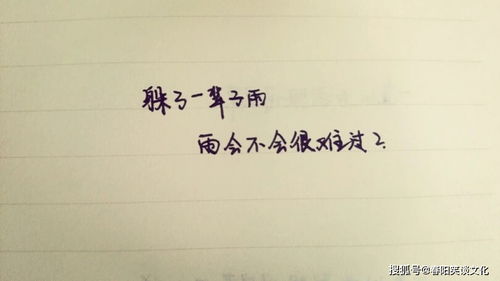 躲了一辈子雨
雨会不会很难过？
搜狐号@春阳笑谈文化